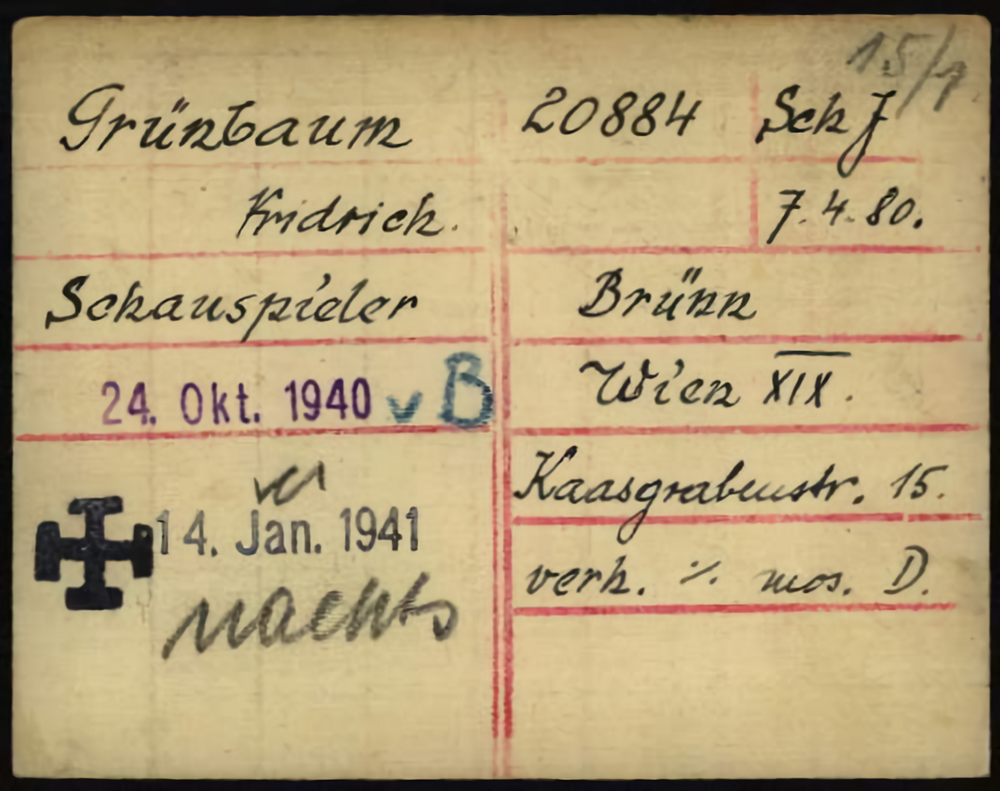 15/1
Grünbaum 20884 Sch J
Fridrich. 7.4.80.
Schauspieler Brünn
24. Okt. 1940 v B Wien XIX.
Kaasgrabenstr. 15.
14. Jan. 1941
verh. % mos. D.
nachts